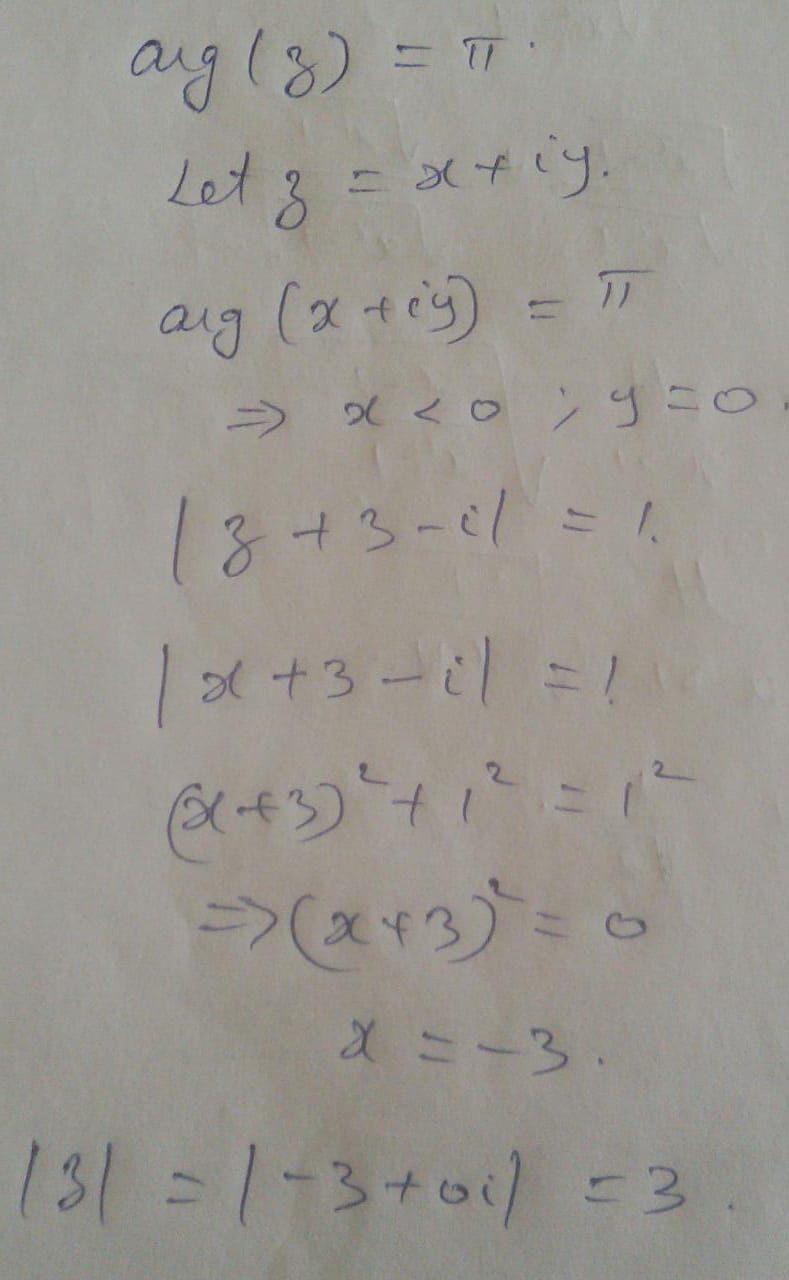 arg(z) = π.
Let z = x + iy.
arg(x + iy) = π
⇒ x < 0 ; y = 0.
|z + 3 - i| = 1.
|x + 3 - i| = 1
(x+3)² + 1² = 1²
⇒ (x+3)² = 0
x = -3.
|z| = |-3 + 0i| = 3.